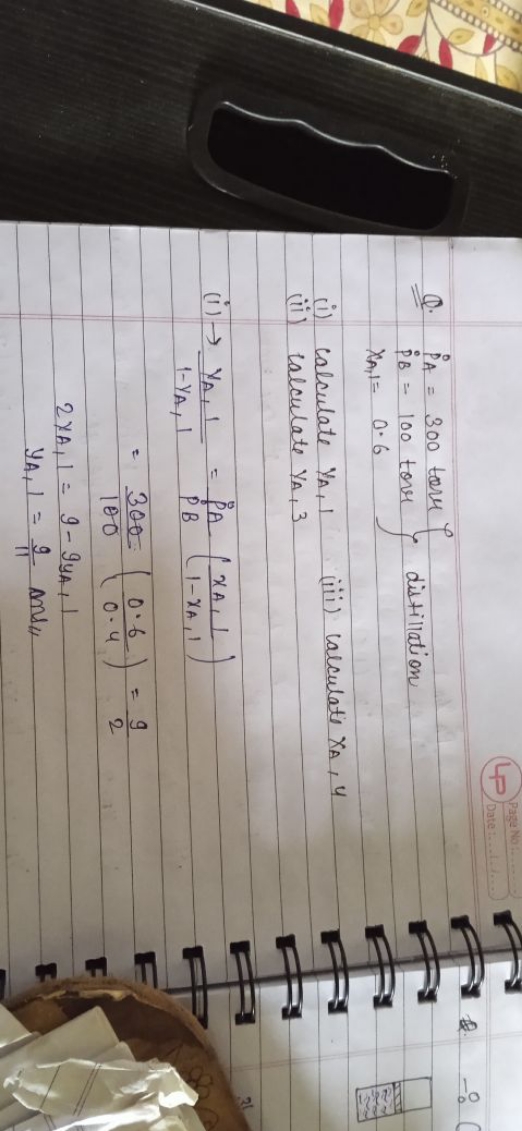 4P
Page No.:
Date:
Q. P°A = 300 torr
P°B = 100 torr } distillation
xA,1 = 0.6
(i) calculate YA,1 (iii) calculate XA,4
(ii) calculate YA,3
(i) → YA,1 / 1-YA,1 = P°A / P°B ( xA,1 / 1-xA,1 )
= 300 / 100 ( 0.6 / 0.4 ) = 9 / 2
2YA,1 = 9 - 9yA,1
yA,1 = 9 / 11 ans